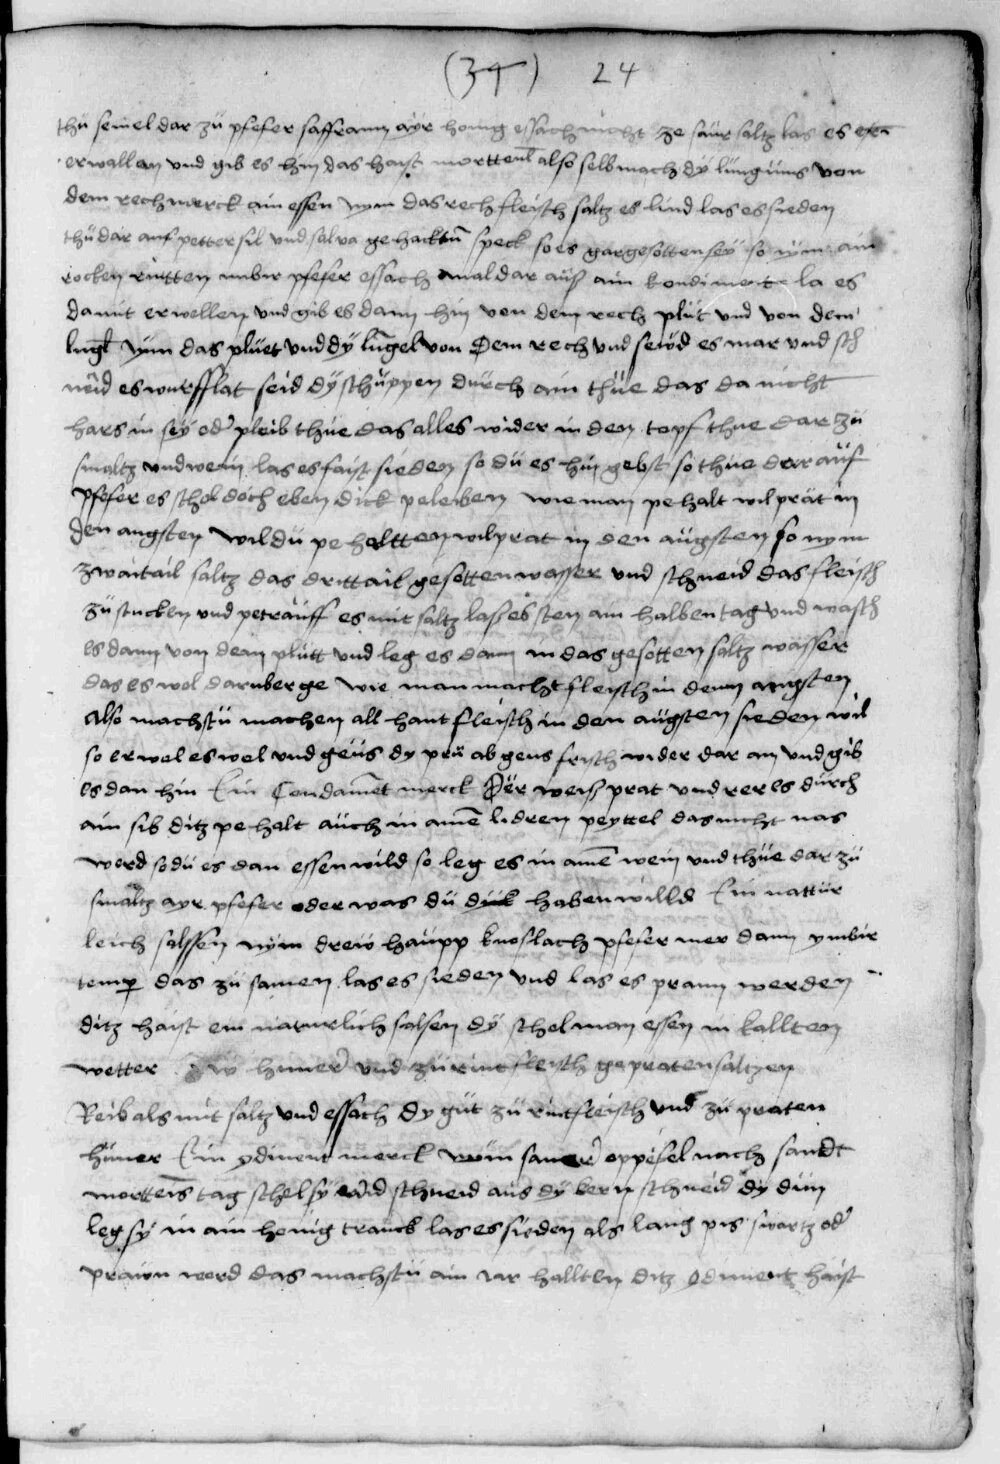 (34) 24
thu semel dar zü pfefer saffrann ayr honig essach nicht ze saur saltz las es
erwallen vnd gib es hin das haist also selb mach dÿ lungmus von
dem rech merck ain essen nym das rech fleisch saltz es lind las es sieden
thü dar auf pettersil vnd salua gehacktn̄ speck so es gar gesotten sey so nym ain
rocken rintten imbir pfefer essach mal dar auß ain kondiment la es
damit erwellen vnd gib es dann hin von dem rech plüt vnd von dem
lungl nym das pluet vnd dÿ lungel von dem rech vnd seud es mar vnd sch
neid es wurfflat seid dÿ schüppen dürch ain thüe das da nicht
hars in seÿ od' pleib thüe das alles wider in den topf thue dar zü
smaltz vnd wein las es faist sieden so dü es hin gebst so thue dar auf
pfefer es schol doch eben dick peleiben wie man pehalt wilprät in
den augsten wildü pehaltten wilprat in den augsten so nym
zwaitail saltz das drittail gesotten wasser vnd schneid das fleisch
zü stucken vnd peträuff es mit saltz las es sten ain halben tag vnd wasch
es dann von dem plutt vnd leg es dann in das gesotten saltz wasser
das es wol darüber ge wie man macht fleisch in denn augsten
also machstü machen all hant fleisch in den augsten sieden wil
so erwel es wol vnd geus dy prü ab geus frisch wider dar an vnd gib
es dan hin Ein Condamēt merck Der weiß prat vnd rer es dürch
ain sib ditz pehalt auch in amē lidren peyttel das nicht nas
werd so dü es dan essen wild so leg es in amē wein vnd thüe dar zü
smaltz ayr pfefer oder was dü haben willd Ein nattür
leich salssen nÿm drew haüpp knoflach pfefer mer dann ymbir
temp̄ das zü samen las es sieden vnd las es prann werden
ditz haist ein naturlich salsen dÿ schol man essen in kallten
wetter zw huner' vnd zü rintfleisch gepraten saltzen
Reib als mit saltz vnd essach dy güt zü rintfleisch vnd zü praten
hüner Ein ydiment merck nÿm sawer' oppefel nach sandt
mertteīs tag schel sÿ vnd schneid aus dÿ kern schneid dÿ dün
leg sÿ in ain honig tranck las es sieden als lang pis swartz od'
prawn werd das machstü ain iar hallten ditz ydiment haist